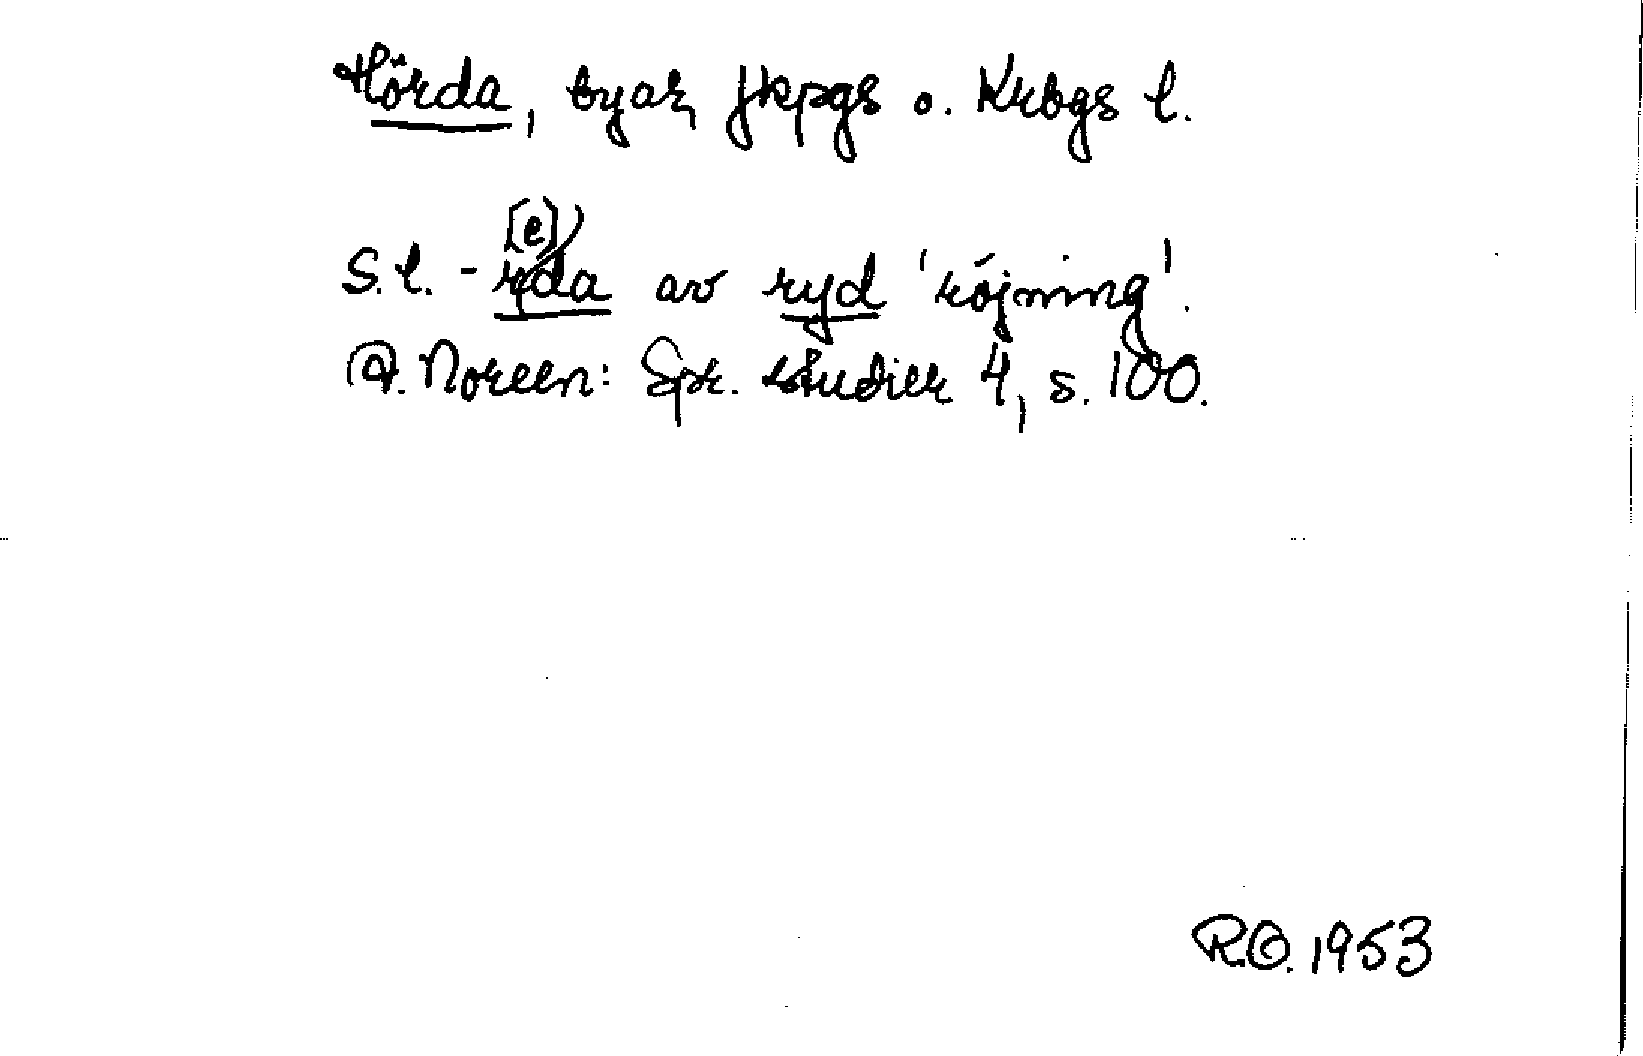 Hörda, byar, Jkpgs o. Krbgs l.
S.l. -r[e]da av ryd 'röjning'.
A. Noreen: Spr. studier 4, s. 100.
R.O. 1953